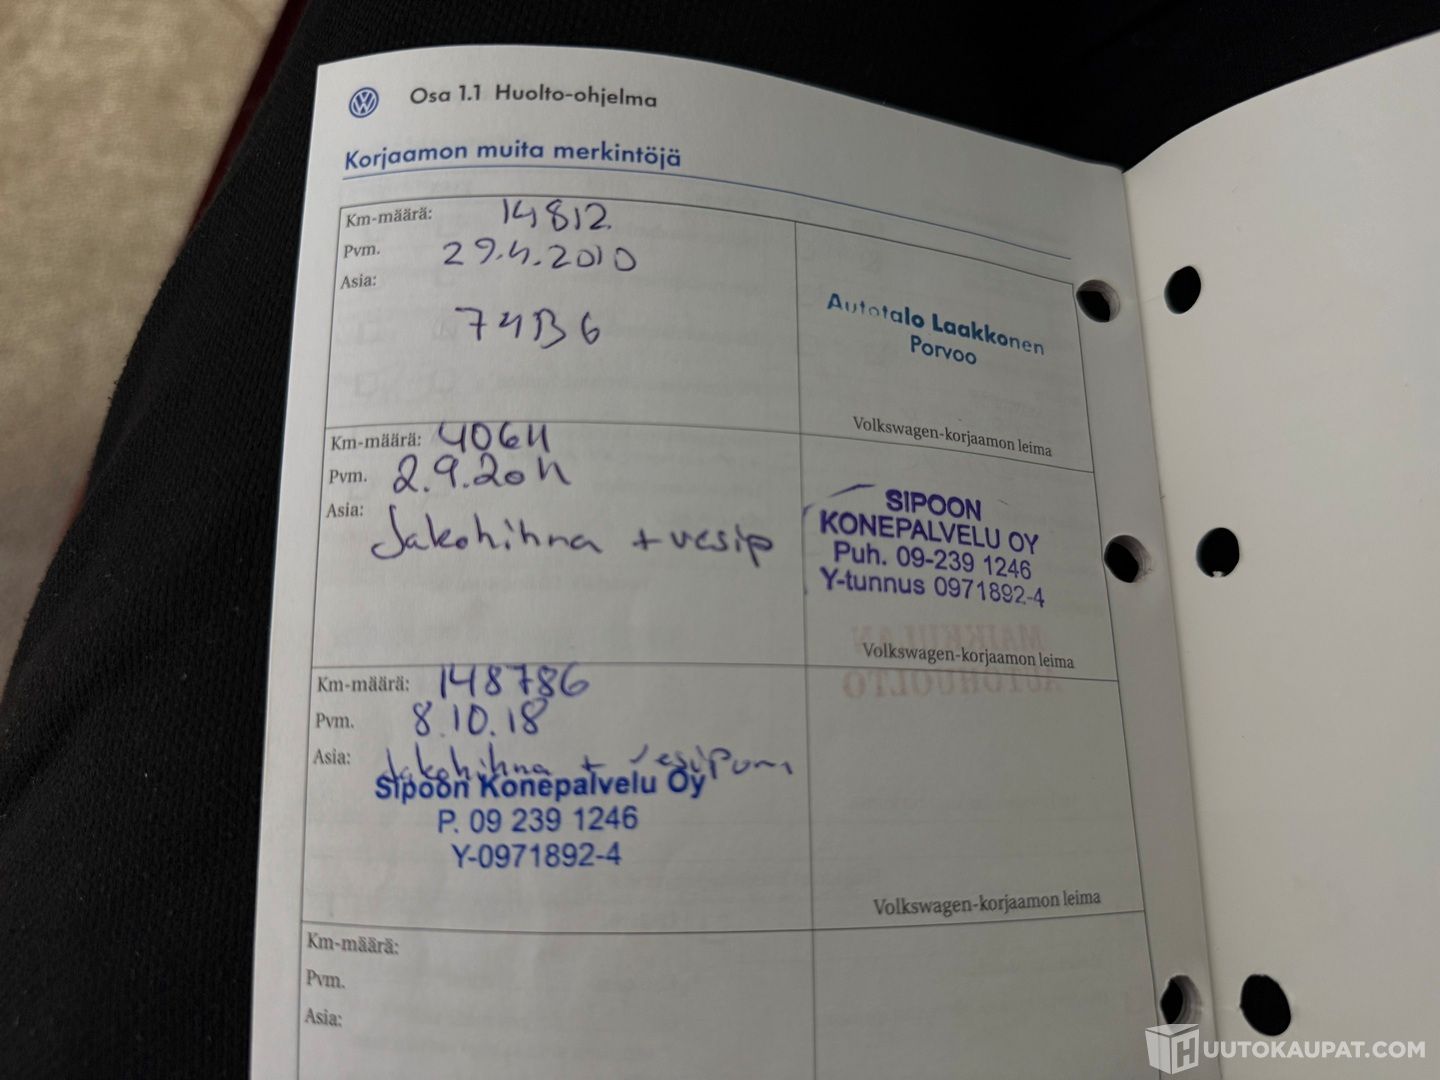 Osa 1.1 Huolto-ohjelma
Korjaamon muita merkintöjä
Km-määrä: 14812
Pvm. 29.4.2010
Asia:
74B6
Autotalo Laakkonen
Porvoo
Volkswagen-korjaamon leima
Km-määrä: 40611
Pvm. 2.9.2011
Asia:
Jakohihna + vesip
SIPOON
KONEPALVELU OY
Puh. 09-239 1246
Y-tunnus 0971892-4
Volkswagen-korjaamon leima
MAIKKULAN
AUTOHUOLTO
Km-määrä: 148786
Pvm. 8.10.18
Asia: Jakohihna + vesipum
Sipoon Konepalvelu Oy
P. 09 239 1246
Y-0971892-4
Volkswagen-korjaamon leima
Km-määrä:
Pvm.
Asia:
HUUTOKAUPAT.COM